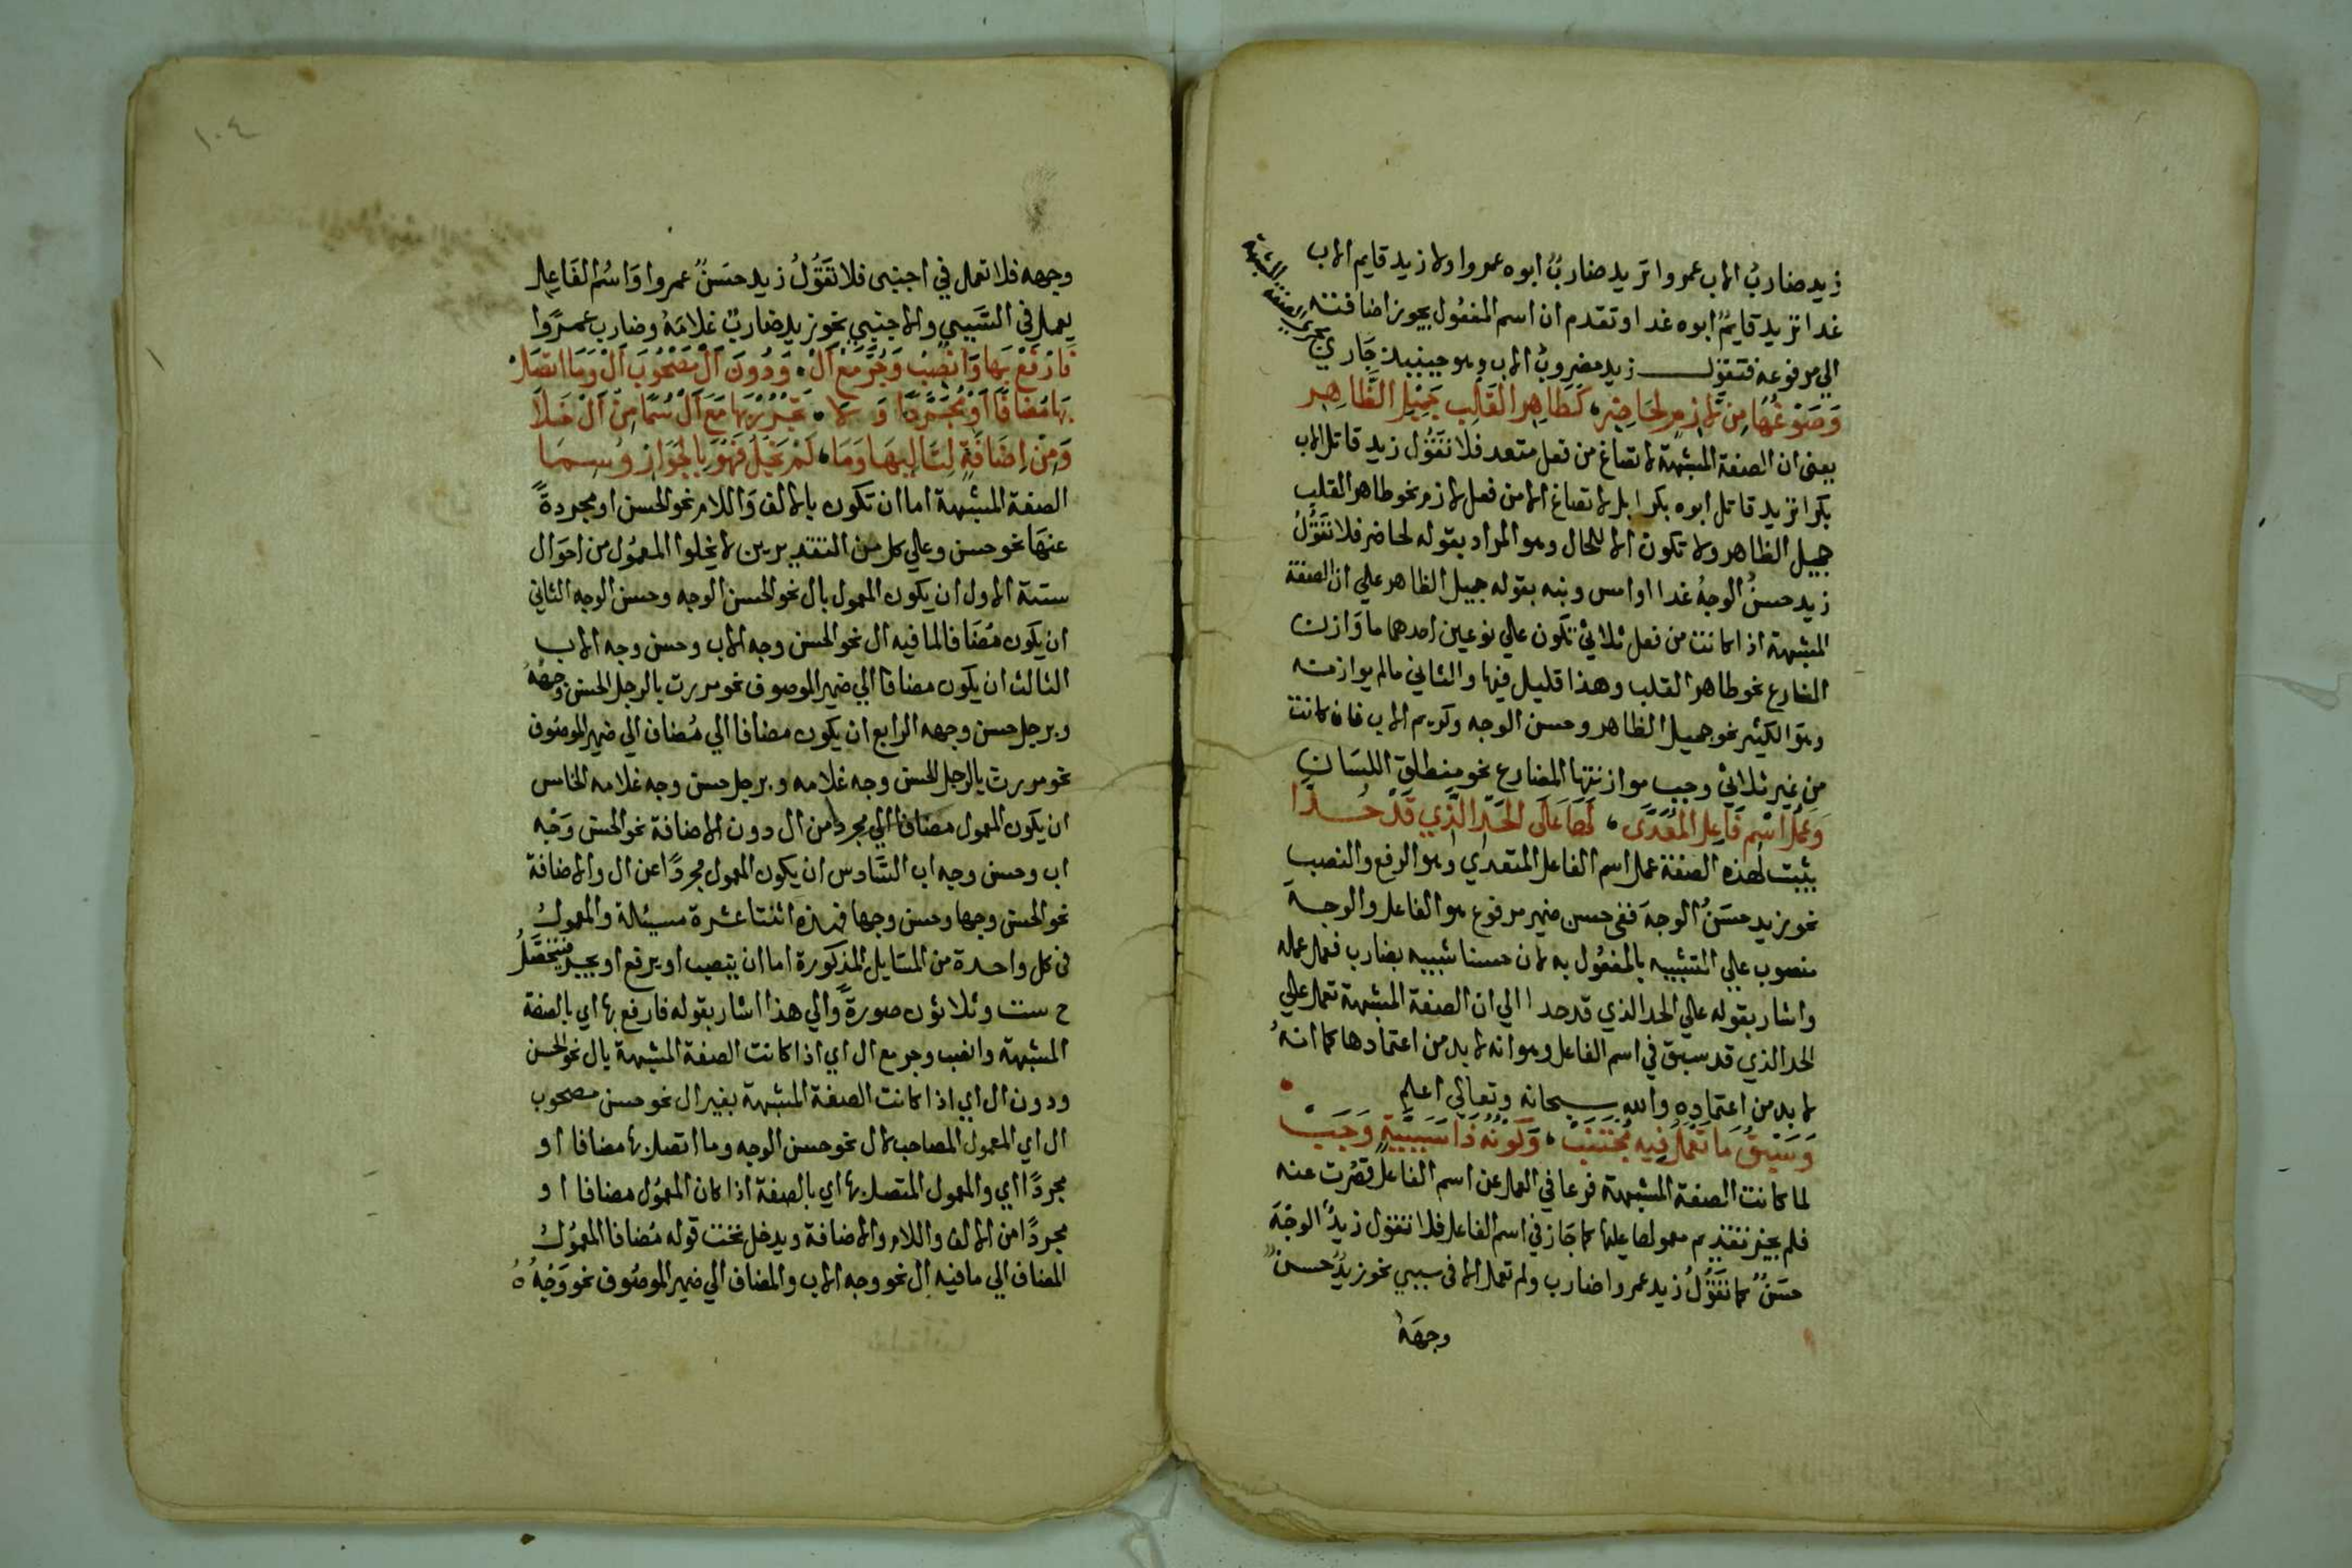 زيد ضاربُ الاب عمروا تريد ضاربٌ ابوه عمروا ولا زيد قايم الاب
غدا تريد قايمٌ ابوه غدا وتقدم ان اسم المفعُول يجوز اضافته
الي مرفوعه فتقول زيد مضروبُ الاب وهو حينيذ جَاري
مجري الصفة المشبهة
وَصَوْغُهَا مِنْ لَازِمٍ لِحَاضِرِ، كَطَاهِرِ القَلْبِ جَمِيْلِ الظَّاهِرِ
يعني ان الصفة المشبهة لا تصاغ من فعل متعد فلا تقَوُل زيد قاتل الاب
بكرا تريد قاتل ابوه بكرا بل لا تصاغ الا من فعل لازم نحو طاهر القلب
جميل الظاهر ولا تكون الا للحال وهو المراد بقوله لحاضر فلا تقَوُلُ
زيد حسنُ الوجهُ غدا او امس ونبه بقوله جميل الظاهر علي ان الصفة
المشبهة اذا كانت من فعل ثلاثي تكون علي نوعين احدهما ما وَازن
المضارع نحو طاهر القلب وهذا قليل فيها والثاني مالم يوازنه
وهوَ الكثير نحو جميل الظاهر وحسن الوجه وكريم الاب فان كانت
من غير ثلاثي وجب موازنتها المضارع نحو منطلق اللسَانِ
وَعَمَلُ اسْمِ فَاعِلِ المُعَدَّى، لَهَا عَلَى الحَدِّ الَّذِي قَدْ حُدَّا
يثبت لهذه الصفة عمل اسم الفاعل المتعدي وهو الرفع والنصب
نحو زيد حسَنُ الوجهَ ففي حسن ضمير مرفوع هو الفاعل والوجه
منصوب علي التشبيه بالمفعُول به لان حسنا شبيه بضارب فعمل عمله
واشار بقوله علي الحد الذي قد حدا الي ان الصفة المشبهة تعمل علي
الحد الذي قد سبق في اسم الفاعل وهو انه لا بد من اعتمادها كما انهُ
لا بد من اعتمادِهِ والله سبحانه وتعالي اعلم
وَسَبْقُ مَا تَعْمَلُ فِيهِ مُجْتَنَبْ، وَكَوْنُهُ ذَا سَبَبِيَّةٍ وَجَبْ
لما كانت الصفة المشبهة فرعا في العمل عن اسم الفاعل قصُرت عنه
فلم يجز تقديم معمولها عليها كما جَاز في اسم الفاعل فلا تقول زيدٌ الوجْهَ
حسَنٌ كما تقَوُلُ زيد عمروا ضارب ولم تعمل الا في سببي نحو زيدٌ حسنٌ
وجههُ
١٠٤
وجهه فلا تعمل في اجنبي فلا تقَوُلُ زيد حسَنٌ عمروا وَاسْم الفَاعِل
يعمل في السَّببي والاجنبي نحو زيد ضاربٌ غلامَهُ وضارب عمرًوا
فَارْفَعْ بِهَا وَانْصِبْ وَجُرَّ مَعَ اَلْ، وَدُونَ اَلْ مَصْحُوبَ اَلْ وَمَا اتصَلْ
بِهَا مُضَافًا اَوْ مُجَرَّدًا وَلا، تَجْرُرْ بِهَا مَعَ اَلْ سُمًا مِنْ اَلْ خَلَا
وَمِنْ اِضَافَةٍ لِتَالِيهَا وَمَا، لَمْ يَخْلُ فَهْوَ بِالْجَوَازِ وُسِمَا
الصفة المشبهة اما ان تكون بالالف وَاللام نحو الحسن او مجردةً
عنهَا نحو حسن وعلي كل من التقديرين لا يخلوا المعمُول من احوَال
ستة الاول ان يكون المعمول بال نحو الحسن الوجه وحسن الوجه الثاني
ان يكون مُضَافا لما فيه ال نحو الحسن وجه الاب وحسن وجه الاب
الثالث ان يكون مضافا الي ضمير الموصوف نحو مررت بالرجل الحسن وجههُ
وبرجل حسن وجهه الرابع ان يكون مضافا الي مُضاف الي ضمير الموصُوف
نحو مررت بالرجل الحسن وجه غلامه وبرجل حسن وجه غلامه الخامس
ان يكون المعمول مضافا الي مجرد من ال دون الاضافة نحو الحسن وَجْه
اب وحسن وجه اب السَّادس ان يكون المعمول مجردًا عن ال والاضافة
نحو الحسن وجها وحسن وجها فهذه اثنتا عشرة مسئلة والمعمولُ
في كل واحدة من المسَايل المذكورة اما ان ينصب او يرفع او يجر فيتحَصَّلُ
ح ست وثلاثون صورةً وَالي هذا اشار بقوله فارفع بها اي بالصفة
المشبهة وانصب وجر مع ال اي اذا كانت الصفة المشبهة بال نحو الحسن
ودون ال اي اذا كانت الصفة المشبهة بغير ال نحو حسن مصحوب
ال اي المعمول المصاحب لال نحو حسن الوجه وما اتصل بها مضافا او
مجردًا اي والمعمول المتصل بها اي بالصفة اذا كان المعمُول مضافا او
مجردًا من الالف واللام والاضافة ويدخل تحت قوله مُضافا المعمُولُ
المضاف الي ما فيه ال نحو وجه الاب والمضاف الي ضمير الموصُوف نحو وَجْهُهُ